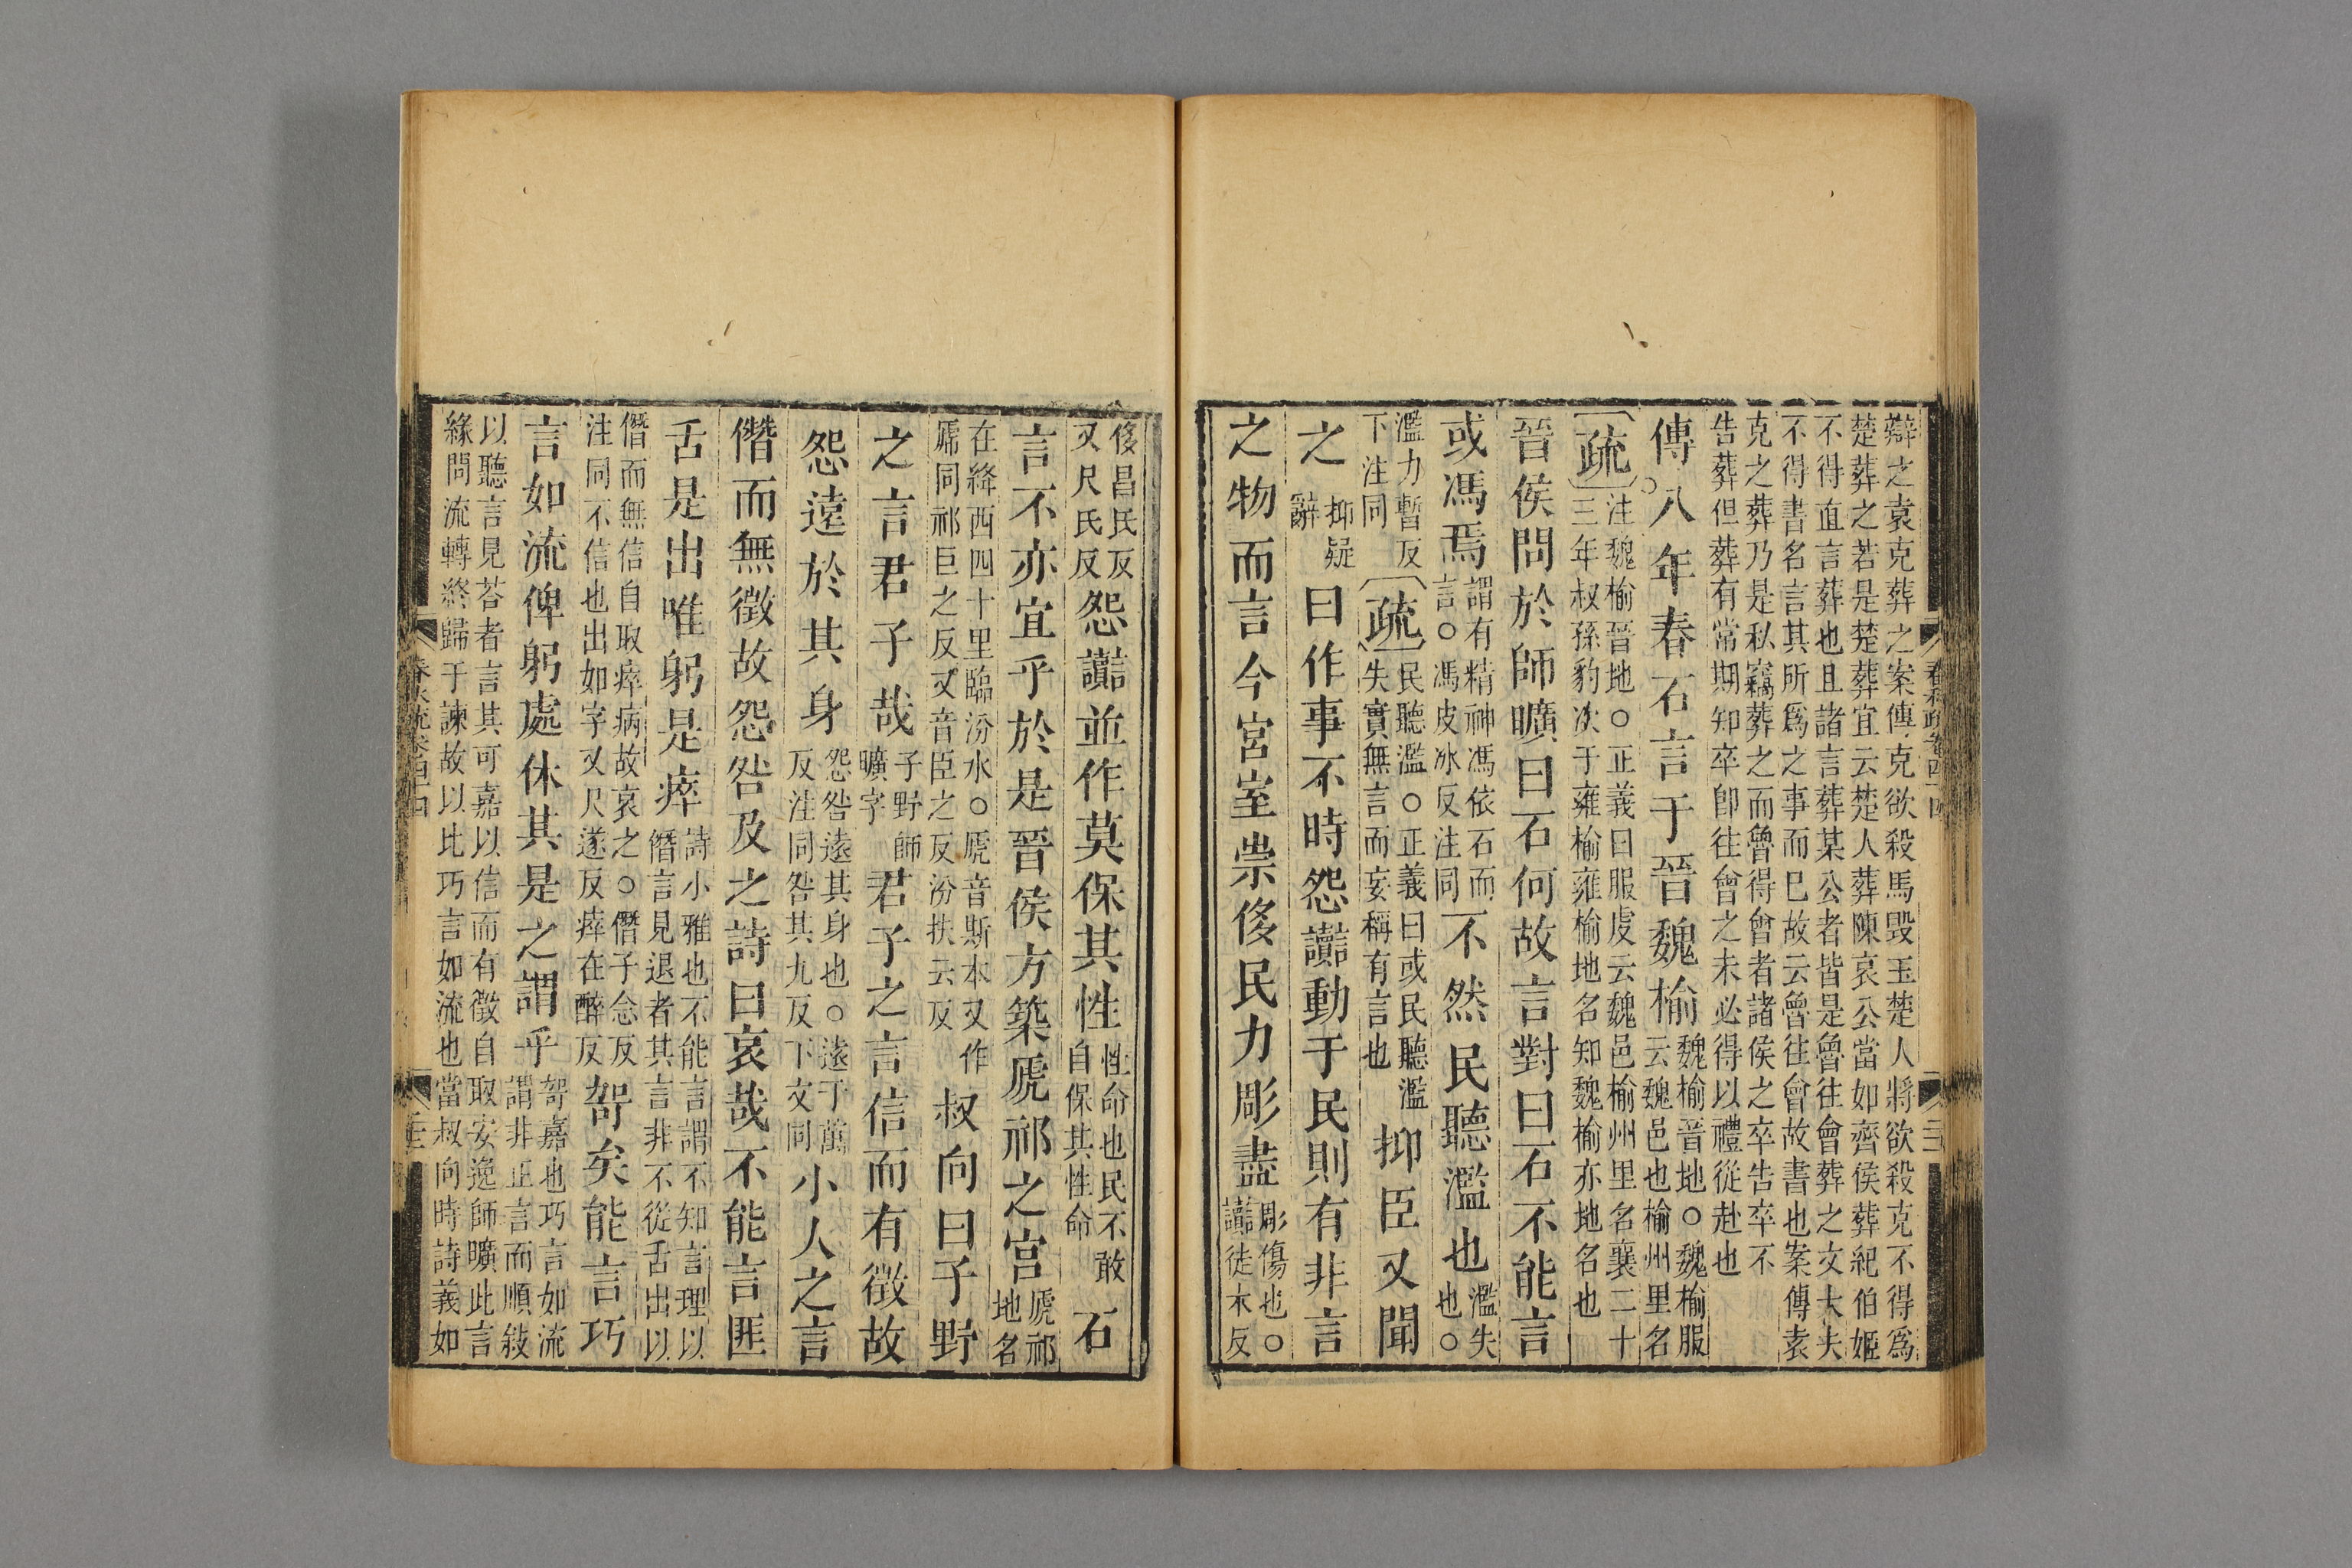 辯之袁克葬之案傳克欲殺馬毀玉楚人將欲殺克不得爲
楚葬之若是楚葬宜云楚人葬陳哀公當如齊侯葬紀伯姬
不得直言葬也且諸言葬某公者皆是魯往會葬之文大夫
不得書名言其所爲之事而巳故云魯往會故書也案傳袁
克之葬乃是私竊葬之而魯得會者諸侯之卒告卒不
告葬但葬有常期知卒卽往會之未必得以禮從赴也
傳八年春石言于晉魏榆魏榆晉地○魏榆服
云魏邑也榆州里名
疏注魏榆晉地○正義曰服虔云魏邑榆州里名襄二十
三年叔孫豹次于雍榆雍榆地名知魏榆亦地名也
晉侯問於師曠曰石何故言對曰石不能言
或馮焉謂有精神馮依石而
言○馮皮冰反注同不然民聽濫也濫失
也○
濫力暫反
下注同疏民聽濫○正義曰或民聽濫
失實無言而妄稱有言也抑臣又聞
之抑疑
辭曰作事不時怨讟動于民則有非言
之物而言今宮室崇侈民力彫盡彫傷也○
讟徒木反
侈昌氏反
又尺氏反怨讟並作莫保其性性命也民不敢
自保其性命石
言不亦宜乎於是晉侯方築虒祁之宮虒祁
地名
在絳西四十里臨汾水○虒音斯本又作
虒同祁巨之反又音臣之反汾扶云反叔向曰子野
之言君子哉子野師
曠字君子之言信而有徵故
怨遠於其身怨咎遠其身也○遠于萬
反注同咎其九反下文同小人之言
僭而無徵故怨咎及之詩曰哀哉不能言匪
舌是出唯躬是瘁詩小雅也不能言謂不知言理以
僭言見退者其言非不從舌出以
僭而無信自取瘁病故哀之○僭子念反
注同不信也出如字又尺遂反瘁在醉反哿矣能言巧
言如流俾躬處休其是之謂乎哿嘉也巧言如流
謂非正言而順敘
以聽言見荅者言其可嘉以信而有徵自取安逸師曠此言
緣問流轉終歸于諫故以比巧言如流也當叔向時詩義如